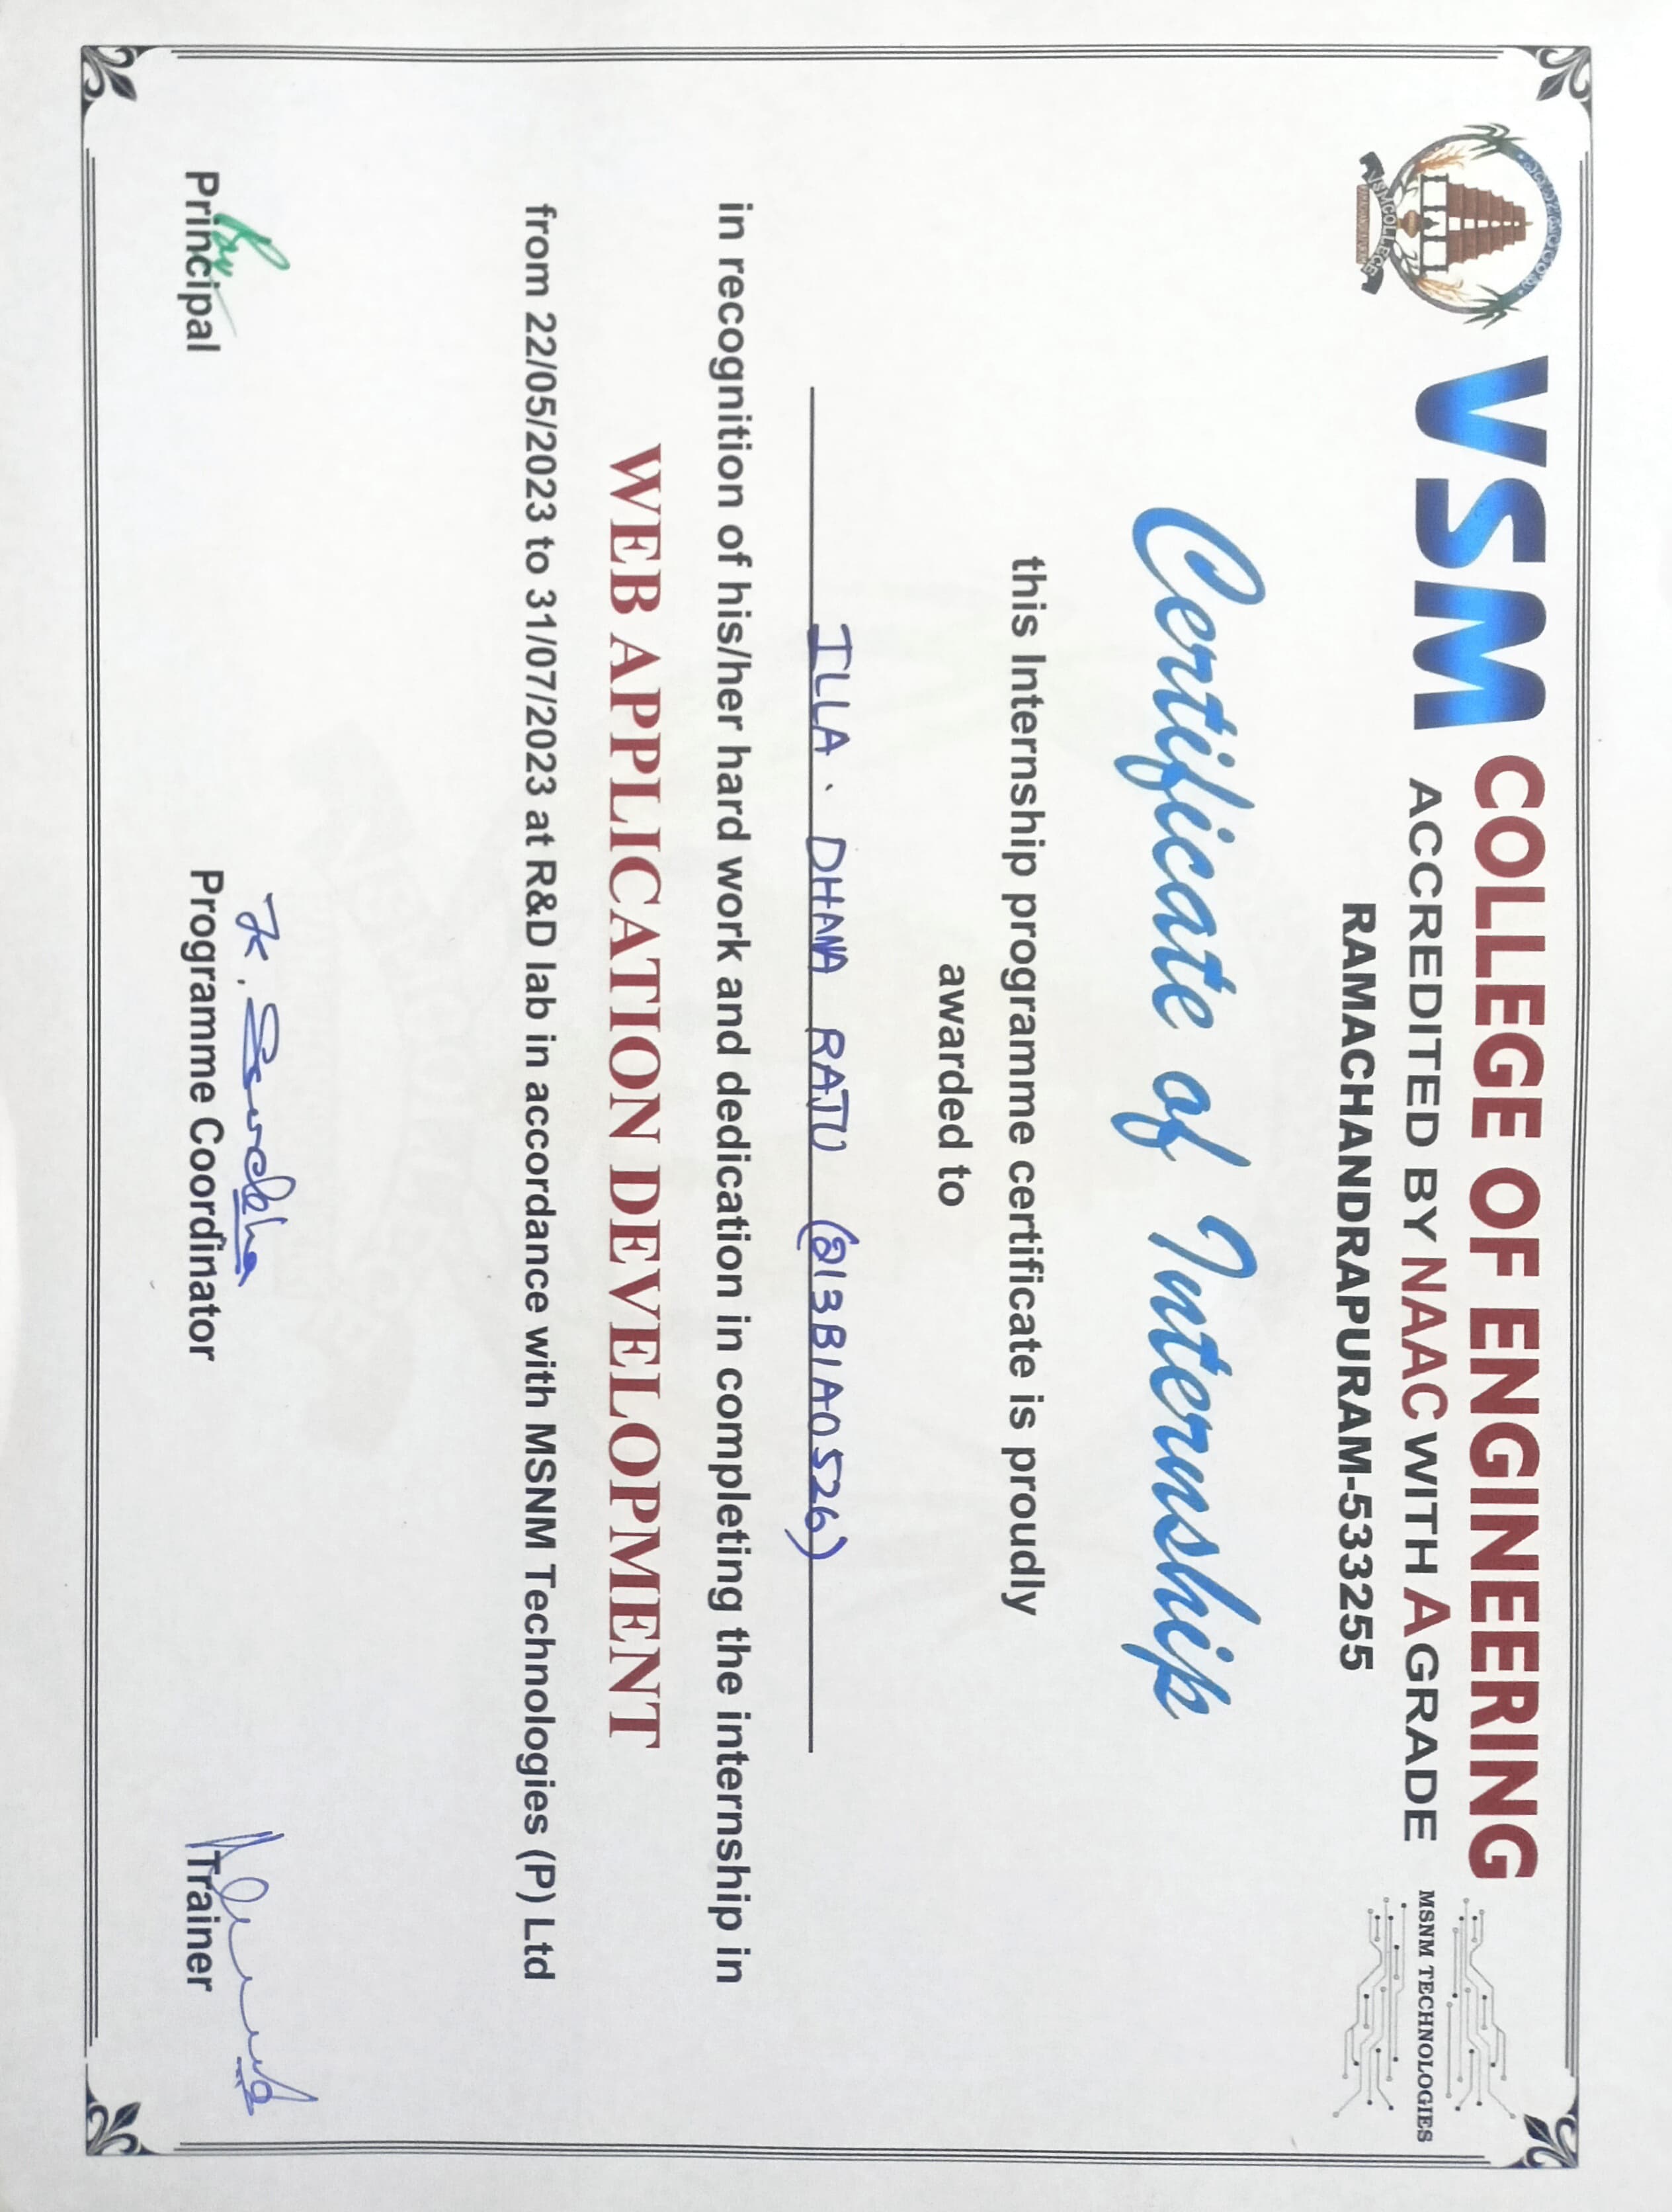 VSM COLLEGE OF ENGINEERING
ACCREDITED BY NAAC WITH A GRADE
RAMACHANDRAPURAM-533255
VSMCOLLEGE
RAMACHANDRAPURAM
MSNM TECHNOLOGIES
Certificate of Internship
this Internship programme certificate is proudly
awarded to
ILLA . DHANA RAJU (213B1A0526)
in recognition of his/her hard work and dedication in completing the internship in
WEB APPLICATION DEVELOPMENT
from 22/05/2023 to 31/07/2023 at R&D lab in accordance with MSNM Technologies (P) Ltd
K. Surekha
Principal
Programme Coordinator
Trainer